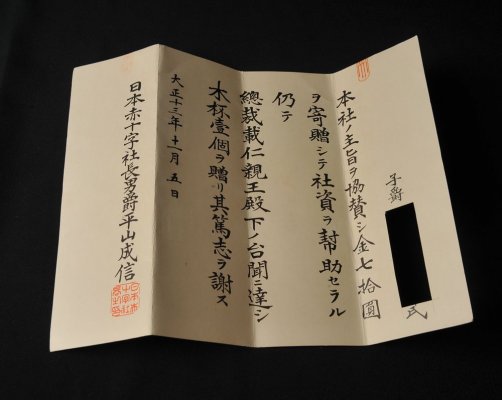 子爵 氏
本社ノ主旨ヲ協賛シ金七拾圓
ヲ寄贈シテ社資ヲ幇助セラル
仍テ
總裁載仁親王殿下ノ台聞ニ達シ
木杯壹個ヲ贈リ其篤志ヲ謝ス
大正十三年十一月五日
日本赤十字社長男爵平山成信